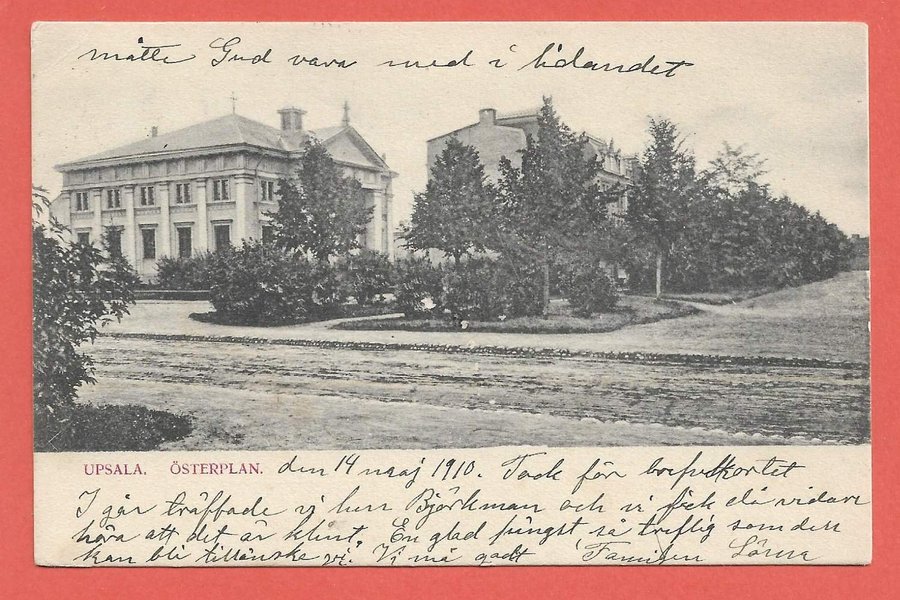 måtte Gud vara med i lidandet
UPSALA. ÖSTERPLAN. den 14 maj 1910. Tack för brefvekortet
I går träffade vi herr Björkman och vi fick då vidare
höra att det är klint. En glad pingst så treflig som den
kan bli tillönske vi. Vi må godt Familjen